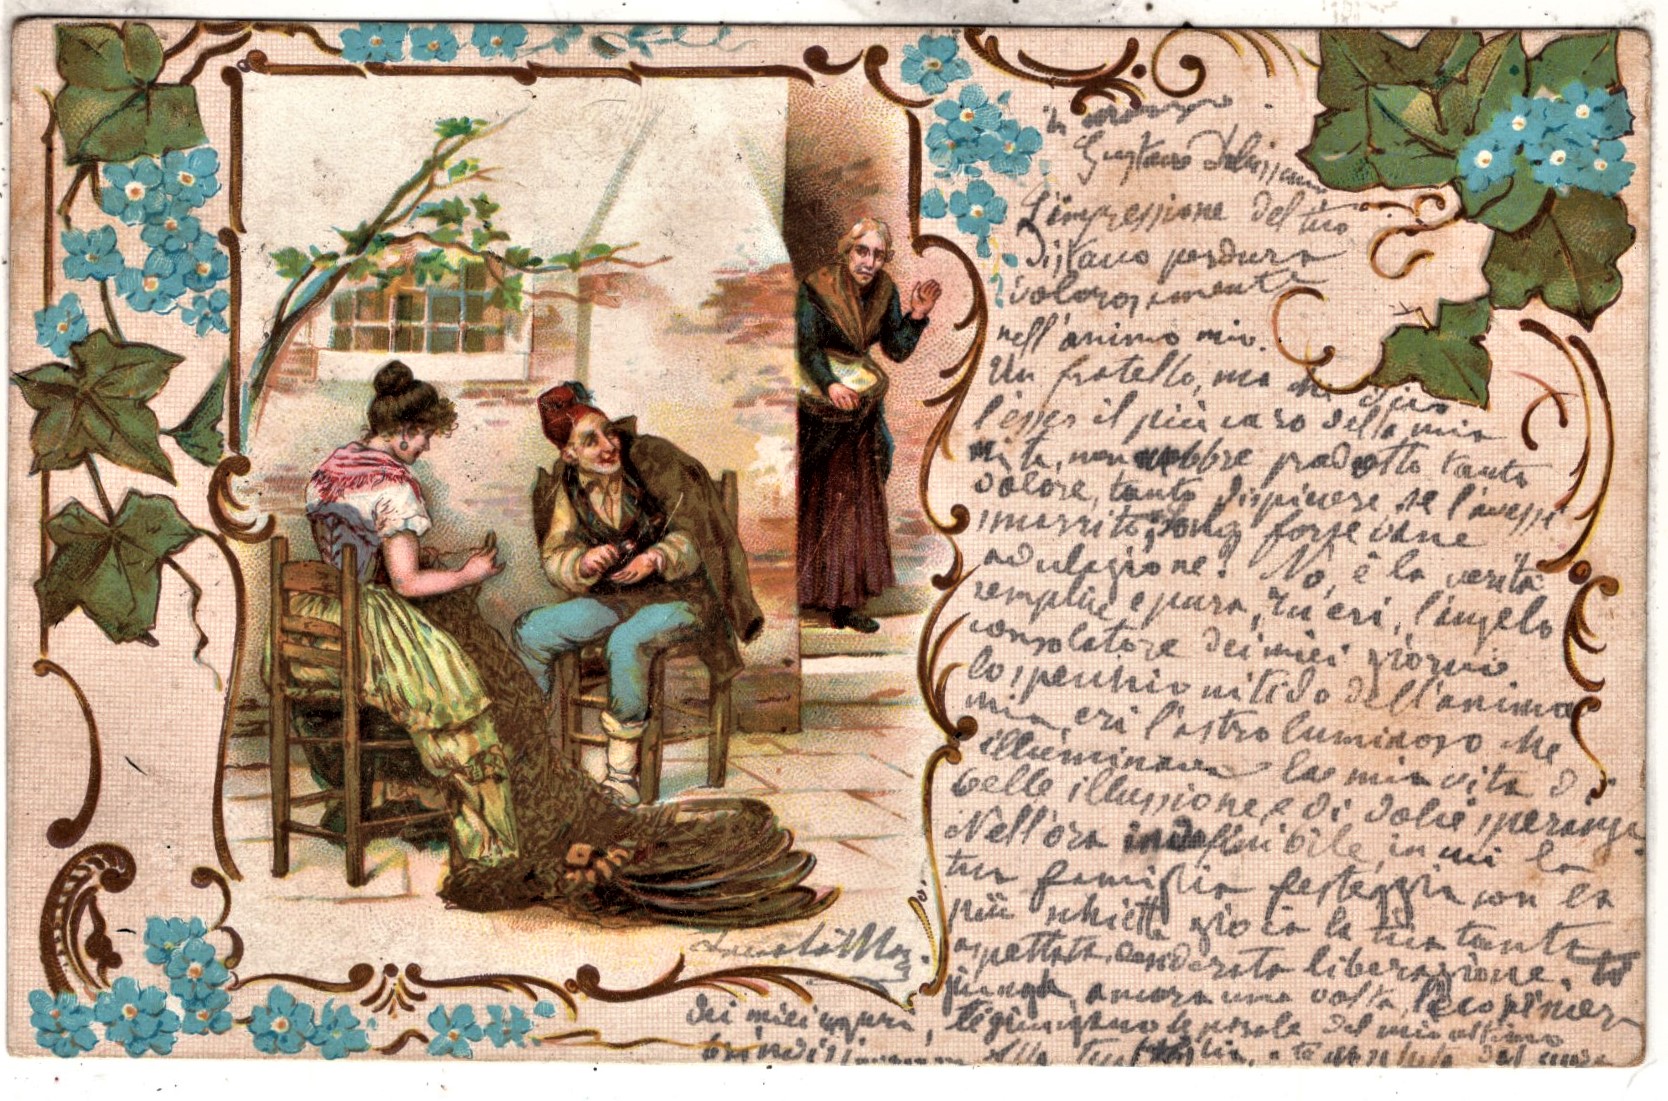 Gustavo
L'impressione del tuo
distacco perdura
dolorosamente
nell'animo mio.
Un fratello, ma che dico
l'esser il più caro della mia
vita, non avrebbe prodotto tanto
dolore, tanto dispiacere se l'avessi
smarrito; sono forse vane
adulazione? No, è la verità
semplice e pura, tu eri, l'angelo
consolatore dei miei giorni
lo specchio nitido dell'animo
mio, eri l'astro luminoso che
illuminava la mia vita di
belle illussione e di dolci speranze
Nell'ora indefinibile, in cui la
tua famiglia festeggia con la
più schietta gioia la tua tanto
aspettata, desiderata liberazione,
giunga, ancora una volta, l'eco
dei miei auguri, le parole del mio